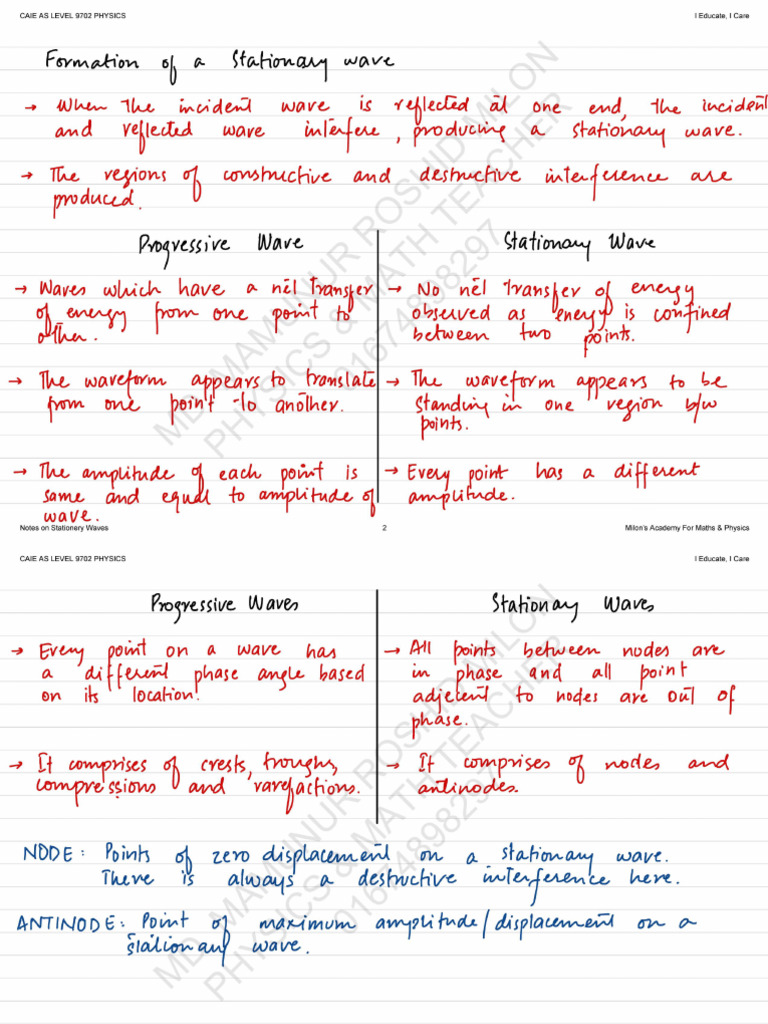 CAIE AS LEVEL 9702 PHYSICS
I Educate, I Care
Formation of a Stationary wave
→ When the incident wave is reflected at one end, the incident
and reflected wave interfere, producing a stationary wave.
→ The regions of constructive and destructive interference are
produced.
Progressive Wave
→ Waves which have a net transfer
of energy from one point to
other.
→ The waveform appears to translate
from one point to another.
→ The amplitude of each point is
same and equal to amplitude of
wave.
Stationary Wave
→ No net transfer of energy
observed as energy is confined
between two points.
→ The waveform appears to be
standing in one region b/w
points.
→ Every point has a different
amplitude.
Notes on Stationery Waves
2
Milon's Academy For Maths & Physics
CAIE AS LEVEL 9702 PHYSICS
I Educate, I Care
Progressive Waves
→ Every point on a wave has
a different phase angle based
on its location.
→ It comprises of crests, troughs,
compressions and rarefactions.
Stationary Waves
→ All points between nodes are
in phase and all point
adjecent to nodes are out of
phase.
→ It comprises of nodes and
antinodes.
NODE: Points of zero displacement on a stationary wave.
There is always a destructive interference here.
ANTINODE: Point of maximum amplitude/displacement on a
stationary wave.
MD. MAMUNUR ROSHID MILON
PHYSICS & MATH TEACHER
01674898297
MD. MAMUNUR ROSHID MILON
PHYSICS & MATH TEACHER
01674898297